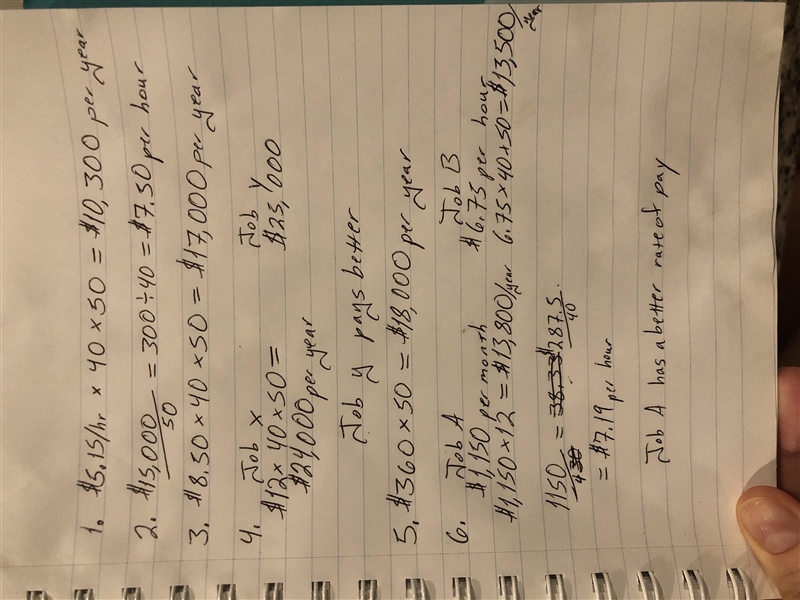 1. $5.15/hr × 40 × 50 = $10,300 per year
2. $15,000/50 = 300 ÷ 40 = $7.50 per hour
3. $8.50 × 40 × 50 = $17,000 per year
4. Job X Job Y
$12 × 40 × 50 = $25,000
$24,000 per year
Job Y pays better
5. $360 × 50 = $18,000 per year
6. Job A Job B
$1,150 per month $6.75 per hour
$1,150 × 12 = $13,800/year 6.75 × 40 × 50 = $13,500/year
1150/4 = 287.5/40
= $7.19 per hour
Job A has a better rate of pay